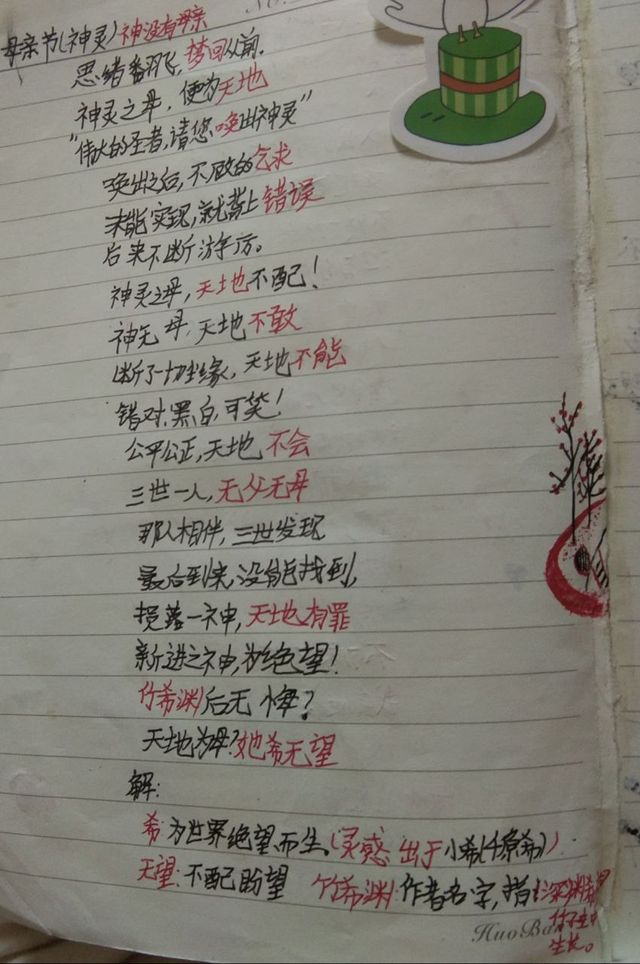 母亲节(神灵) 神没有母亲
思绪翻飞,梦回从前.
神灵之母,便为天地
"伟大的圣者,请您唤出神灵"
唤出之后,不敢的乞求
未能实现,就蒙上错误
后来不断游历。
神灵之母,天地不配!
神无母,天地不敢
断了一切尘缘,天地不能
错对,黑白,可笑!
公平公正,天地不会
三世一人,无父无母
那人相伴,三世发现
最后到来,没能找到,
损落一神,天地有罪
新进之神,为绝望!
竹希渊后无悔?
天地为母?她希无望
解:
希:为世界绝望而生.(灵惑出于小希(千原希))
无望:不配盼望 竹希渊:作者名字,指
生长。
HuoBa